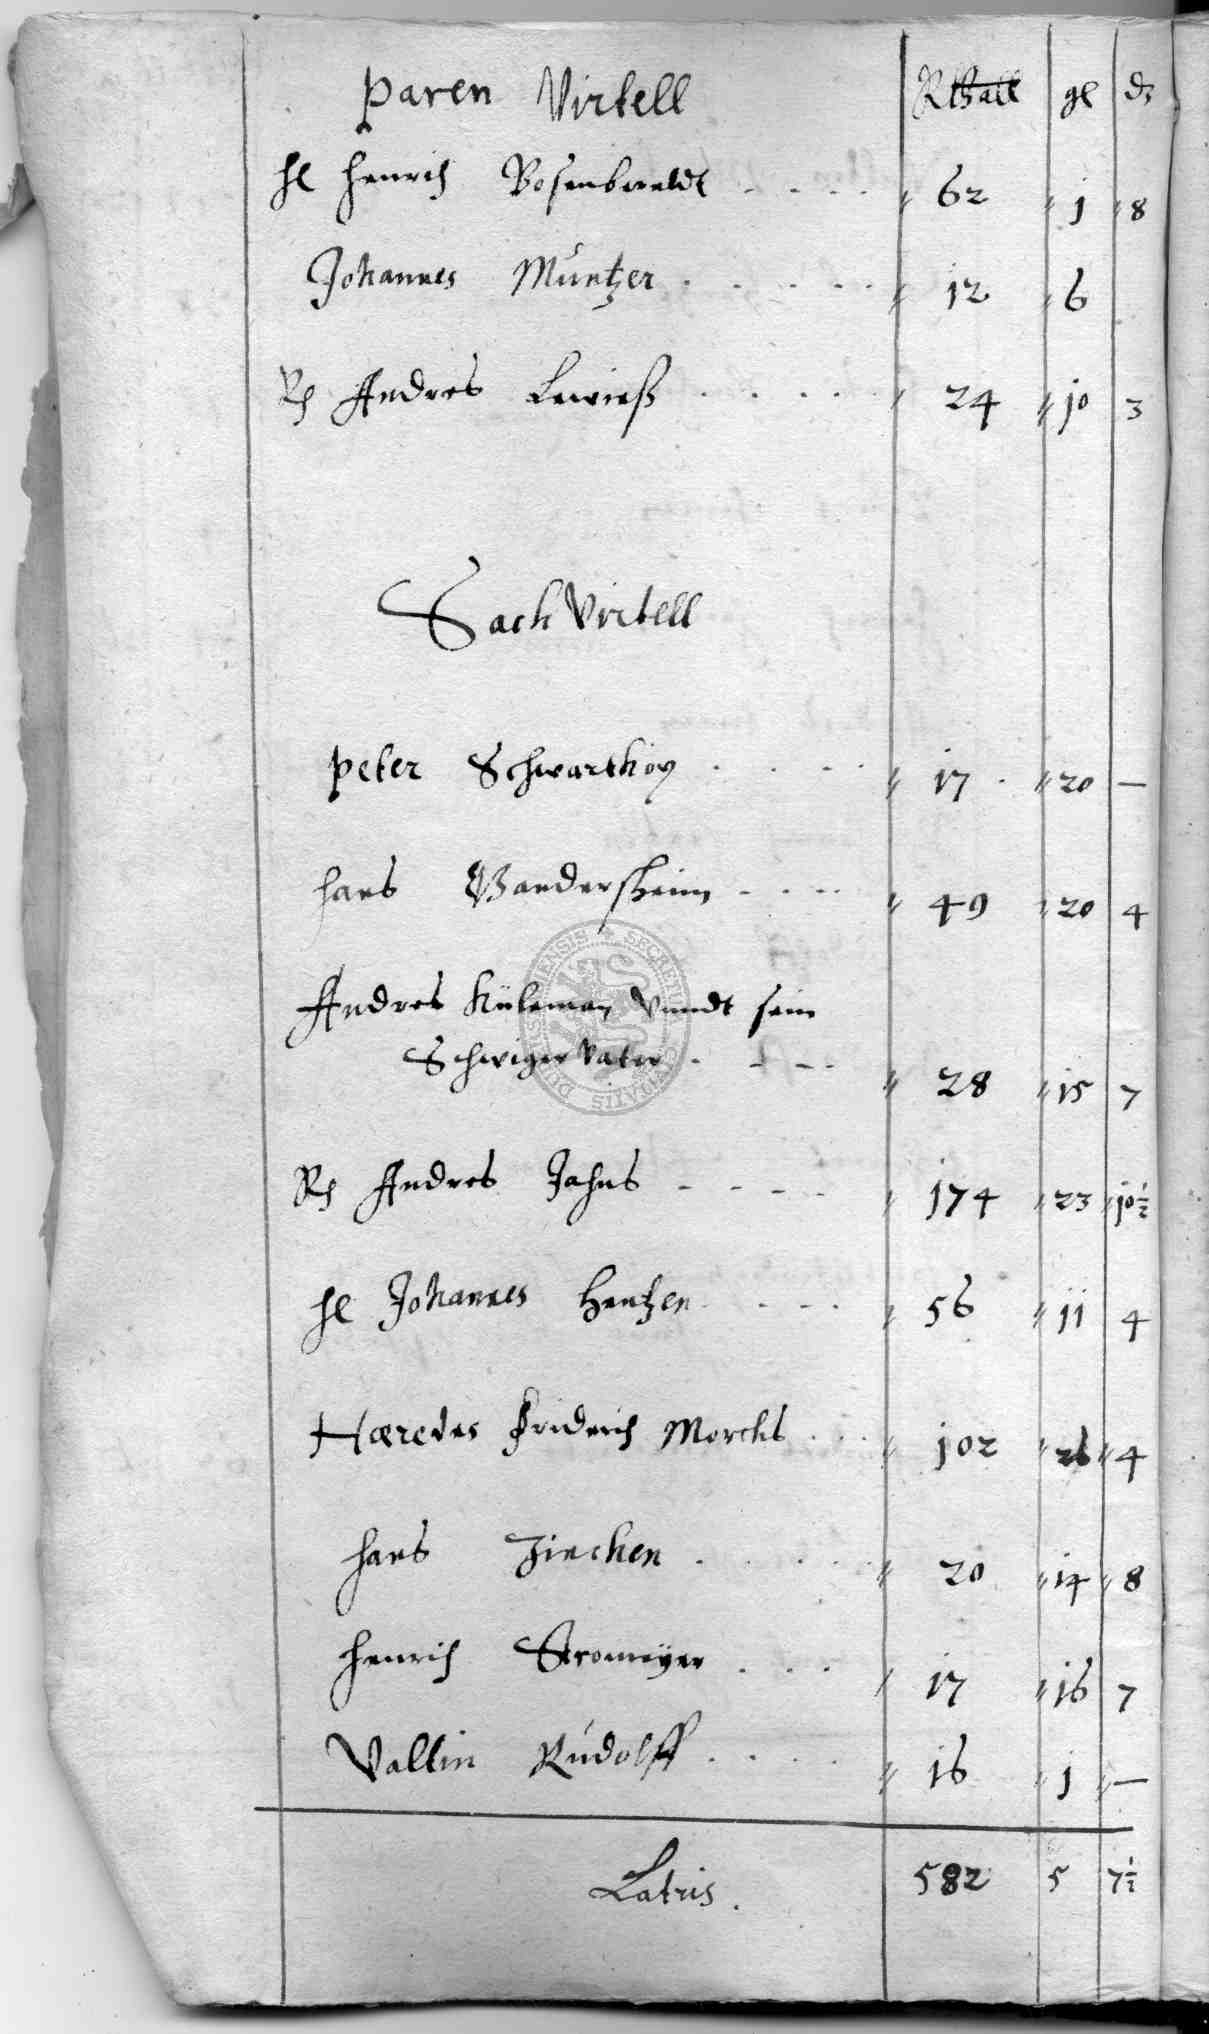 Paren Virtell RThall gl d
H Henrich Bosenbereldt . . . . " 62 " j " 8
Johannes Müntzer . . . . . " 12 " 6
Andres Lewieß . . . . " 24 " j0 3
Sach Virtell
Peter Schwartkop . . . . " 17 . " 20 —
Hans Gandersheim - . . . " 49 " 20 4
Andres Küleman Vnndt sein
Schwiger Vater . - - - " 28 " 15 7
Andres Jahns - - - - " 174 " 23 " j0½
H Johannes Hentzen . . . . " 56 " jj 4
Hæredes Fridrich Morchs . . . " 102 " 26 " 4
Hans Zinchen . . . . . " 20 " 14 " 8
Henrich Stromeyer . . . " 17 " 16 7
Valtin Rudolff . . . . " 16 " j " —
Latris . 582 5 7½